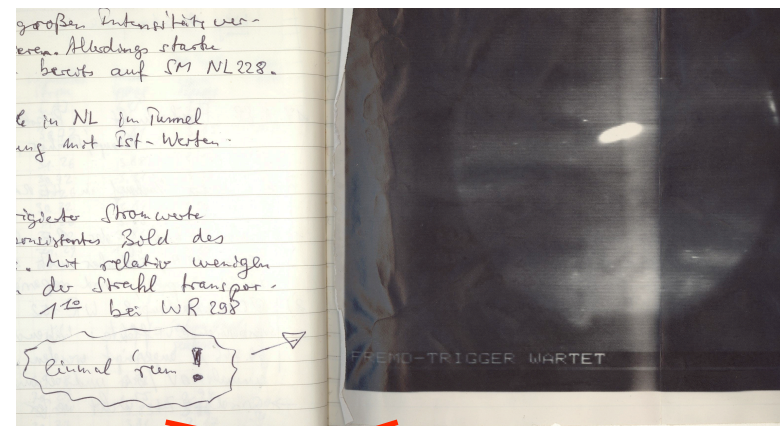 großen Intensitäts ver-
eren. Allerdings starke
bereits auf SM NL228.
in NL im Tunnel
ung mit Ist-Werten.
igierter Stromwerte
onsistentes Bild des
. Mit relativ wenigen
der Strahl transpor-
bei WR 298
einmal rum!
FREMD-TRIGGER WARTET